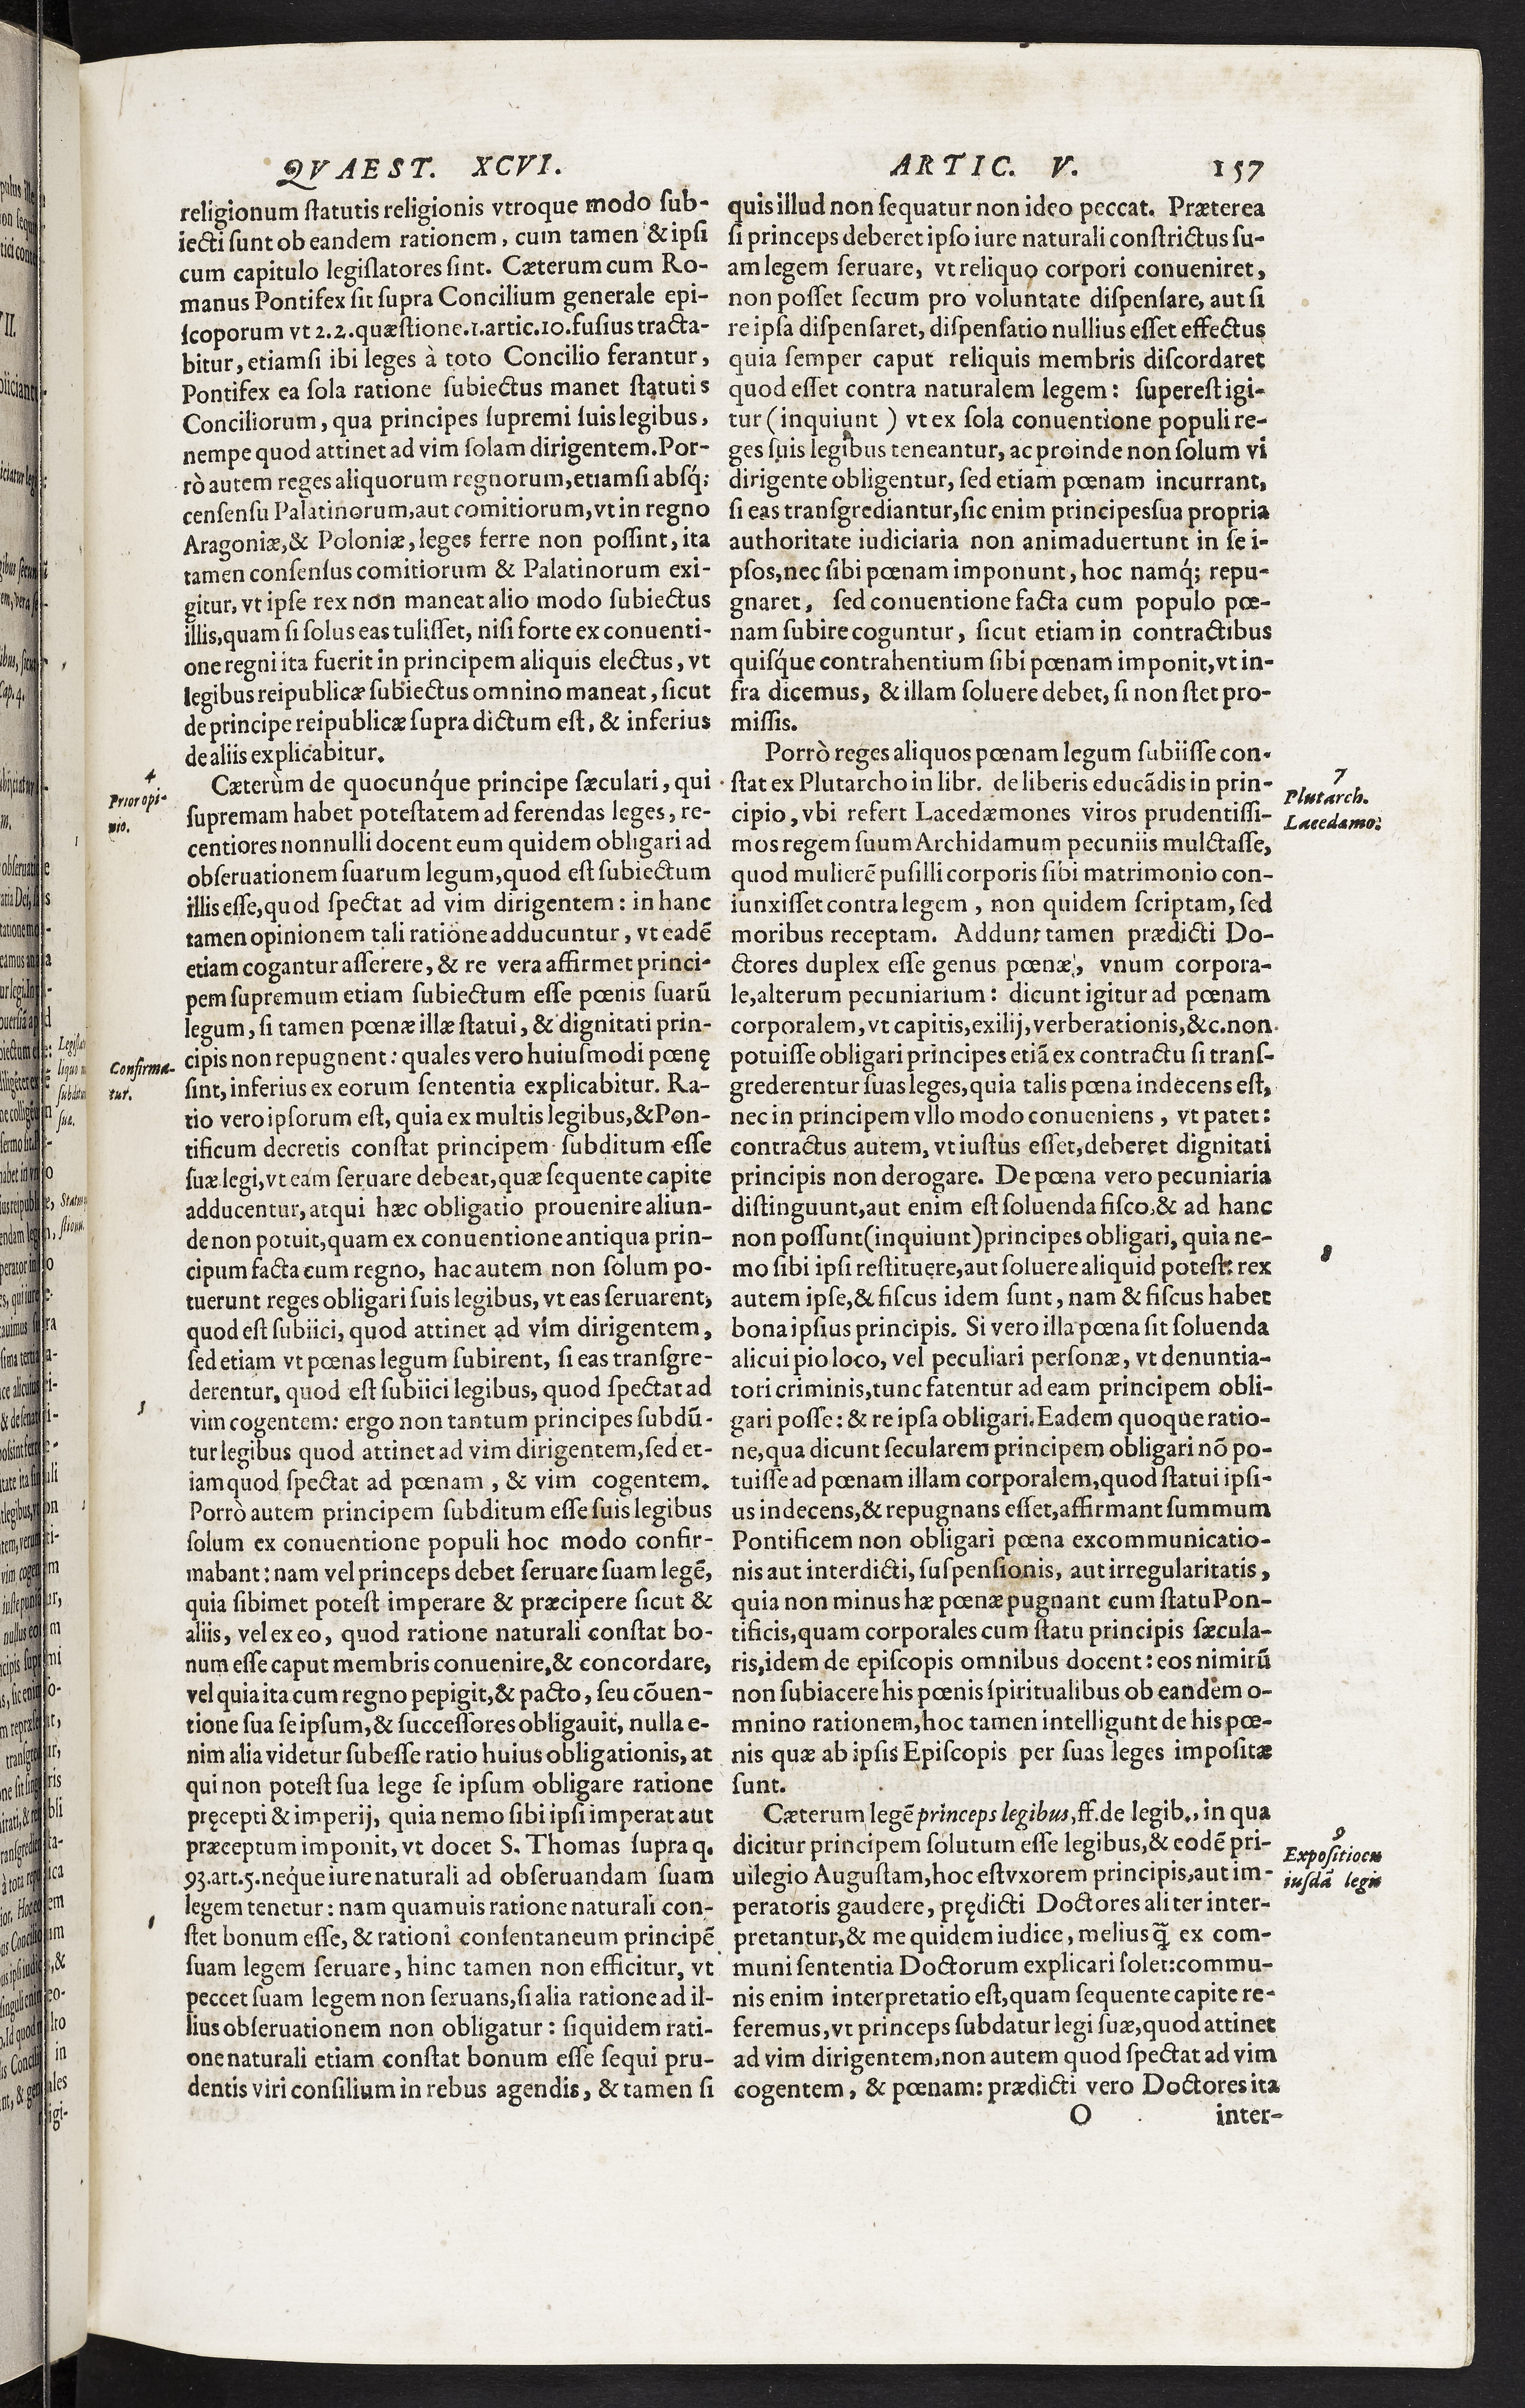 QVAEST. XCVI.
religionum ſtatutis religionis vtroque modo ſub-
iecti ſunt ob eandem rationem, cum tamen & ipſi
cum capitulo legiſlatores ſint. Cæterum cum Ro-
manus Pontifex ſit ſupra Concilium generale epi-
ſcoporum vt 2.2.quæſtione.1.artic.10.fuſius tracta-
bitur, etiamſi ibi leges à toto Concilio ferantur,
Pontifex ea ſola ratione ſubiectus manet ſtatutis
Conciliorum, qua principes ſupremi ſuis legibus,
nempe quod attinet ad vim ſolam dirigentem. Por-
rò autem reges aliquorum regnorum, etiamſi abſq́;
cenſenſu Palatinorum, aut comitiorum, vt in regno
Aragoniæ, & Poloniæ, leges ferre non poſſint, ita
tamen conſenſus comitiorum & Palatinorum exi-
gitur, vt ipſe rex non maneat alio modo ſubiectus
illis, quam ſi ſolus eas tuliſſet, niſi forte ex conuenti-
one regni ita fuerit in principem aliquis electus, vt
legibus reipublicæ ſubiectus omnino maneat, ſicut
de principe reipublicæ ſupra dictum eſt, & inferius
de aliis explicabitur.
4
Prior opi-
nio.
Cæterùm de quocunq́ue principe ſæculari, qui
ſupremam habet poteſtatem ad ferendas leges, re-
centiores nonnulli docent eum quidem obligari ad
obſeruationem ſuarum legum, quod eſt ſubiectum
illis eſſe, quod ſpectat ad vim dirigentem: in hanc
tamen opinionem tali ratione adducuntur, vt eadē
etiam cogantur aſſerere, & re vera affirmet princi-
pem ſupremum etiam ſubiectum eſſe pœnis ſuarū
legum, ſi tamen pœnæ illæ ſtatui, & dignitati prin-
cipis non repugnent: quales vero huiuſmodi pœnę
Confirma-
tur.
ſint, inferius ex eorum ſententia explicabitur. Ra-
tio vero ipſorum eſt, quia ex multis legibus, & Pon-
tificum decretis conſtat principem ſubditum eſſe
ſuæ legi, vt eam ſeruare debeat, quæ ſequente capite
adducentur, atqui hæc obligatio prouenire aliun-
de non potuit, quam ex conuentione antiqua prin-
cipum facta cum regno, hac autem non ſolum po-
tuerunt reges obligari ſuis legibus, vt eas ſeruarent,
quod eſt ſubiici, quod attinet ad vim dirigentem,
ſed etiam vt pœnas legum ſubirent, ſi eas tranſgre-
derentur, quod eſt ſubiici legibus, quod ſpectat ad
vim cogentem: ergo non tantum principes ſubdū-
tur legibus quod attinet ad vim dirigentem, ſed et-
iam quod ſpectat ad pœnam, & vim cogentem.
Porrò autem principem ſubditum eſſe ſuis legibus
ſolum ex conuentione populi hoc modo confir-
mabant: nam vel princeps debet ſeruare ſuam legē,
quia ſibimet poteſt imperare & præcipere ſicut &
aliis, vel ex eo, quod ratione naturali conſtat bo-
num eſſe caput membris conuenire, & concordare,
vel quia ita cum regno pepigit, & pacto, ſeu cōuen-
tione ſua ſe ipſum, & ſucceſſores obligauit, nulla e-
nim alia videtur ſubeſſe ratio huius obligationis, at
qui non poteſt ſua lege ſe ipſum obligare ratione
pręcepti & imperij, quia nemo ſibi ipſi imperat aut
præceptum imponit, vt docet S. Thomas ſupra q.
93.art.5. neq́ue iure naturali ad obſeruandam ſuam
legem tenetur: nam quamuis ratione naturali con-
ſtet bonum eſſe, & rationi conſentaneum principē
ſuam legem ſeruare, hinc tamen non efficitur, vt
peccet ſuam legem non ſeruans, ſi alia ratione ad il-
lius obſeruationem non obligatur: ſiquidem rati-
one naturali etiam conſtat bonum eſſe ſequi pru-
dentis viri conſilium in rebus agendis, & tamen ſi
ARTIC. V. 157
quis illud non ſequatur non ideo peccat. Præterea
ſi princeps deberet ipſo iure naturali conſtrictus ſu-
am legem ſeruare, vt reliquo corpori conueniret,
non poſſet ſecum pro voluntate diſpenſare, aut ſi
re ipſa diſpenſaret, diſpenſatio nullius eſſet effectus
quia ſemper caput reliquis membris diſcordaret
quod eſſet contra naturalem legem: ſupereſt igi-
tur (inquiunt) vt ex ſola conuentione populi re-
ges ſuis legibus teneantur, ac proinde non ſolum vi
dirigente obligentur, ſed etiam pœnam incurrant,
ſi eas tranſgrediantur, ſic enim principes ſua propria
authoritate iudiciaria non animaduertunt in ſe i-
pſos, nec ſibi pœnam imponunt, hoc namq́; repu-
gnaret, ſed conuentione facta cum populo pœ-
nam ſubire coguntur, ſicut etiam in contractibus
quiſq́ue contrahentium ſibi pœnam imponit, vt in-
fra dicemus, & illam ſoluere debet, ſi non ſtet pro-
miſſis.
Porrò reges aliquos pœnam legum ſubiiſſe con-
7
Plutarch.
Lacedamo.
ſtat ex Plutarcho in libr. de liberis educādis in prin-
cipio, vbi refert Lacedæmones viros prudentiſſi-
mos regem ſuum Archidamum pecuniis mulctaſſe,
quod mulierē puſilli corporis ſibi matrimonio con-
iunxiſſet contra legem, non quidem ſcriptam, ſed
moribus receptam. Addunt tamen prædicti Do-
ctores duplex eſſe genus pœnæ, vnum corpora-
le, alterum pecuniarium: dicunt igitur ad pœnam
corporalem, vt capitis, exilij, verberationis, &c. non
potuiſſe obligari principes etiā ex contractu ſi tranſ-
grederentur ſuas leges, quia talis pœna indecens eſt,
nec in principem vllo modo conueniens, vt patet:
contractus autem, vt iuſtus eſſet, deberet dignitati
principis non derogare. De pœna vero pecuniaria
diſtinguunt, aut enim eſt ſoluenda fiſco, & ad hanc
non poſſunt (inquiunt) principes obligari, quia ne-
8
mo ſibi ipſi reſtituere, aut ſoluere aliquid poteſt: rex
autem ipſe, & fiſcus idem ſunt, nam & fiſcus habet
bona ipſius principis. Si vero illa pœna ſit ſoluenda
alicui pio loco, vel peculiari perſonæ, vt denuntia-
tori criminis, tunc fatentur ad eam principem obli-
gari poſſe: & re ipſa obligari. Eadem quoque ratio-
ne, qua dicunt ſecularem principem obligari nō po-
tuiſſe ad pœnam illam corporalem, quod ſtatui ipſi-
us indecens, & repugnans eſſet, affirmant ſummum
Pontificem non obligari pœna excommunicatio-
nis aut interdicti, ſuſpenſionis, aut irregularitatis,
quia non minus hæ pœnæ pugnant cum ſtatu Pon-
tificis, quam corporales cum ſtatu principis ſæcula-
ris, idem de epiſcopis omnibus docent: eos nimirū
non ſubiacere his pœnis ſpiritualibus ob eandem o-
mnino rationem, hoc tamen intelligunt de his pœ-
nis quæ ab ipſis Epiſcopis per ſuas leges impoſitæ
ſunt.
Cæterum legē princeps legibus, ff. de legib., in qua
9
Expoſitio eu
iuſdā legis
dicitur principem ſolutum eſſe legibus, & eodē pri-
uilegio Auguſtam, hoc eſt vxorem principis, aut im-
peratoris gaudere, prędicti Doctores aliter inter-
pretantur, & me quidem iudice, melius q̃ ex com-
muni ſententia Doctorum explicari ſolet: commu-
nis enim interpretatio eſt, quam ſequente capite re-
feremus, vt princeps ſubdatur legi ſuæ, quod attinet
ad vim dirigentem, non autem quod ſpectat ad vim
cogentem, & pœnam: prædicti vero Doctores ita
O inter-